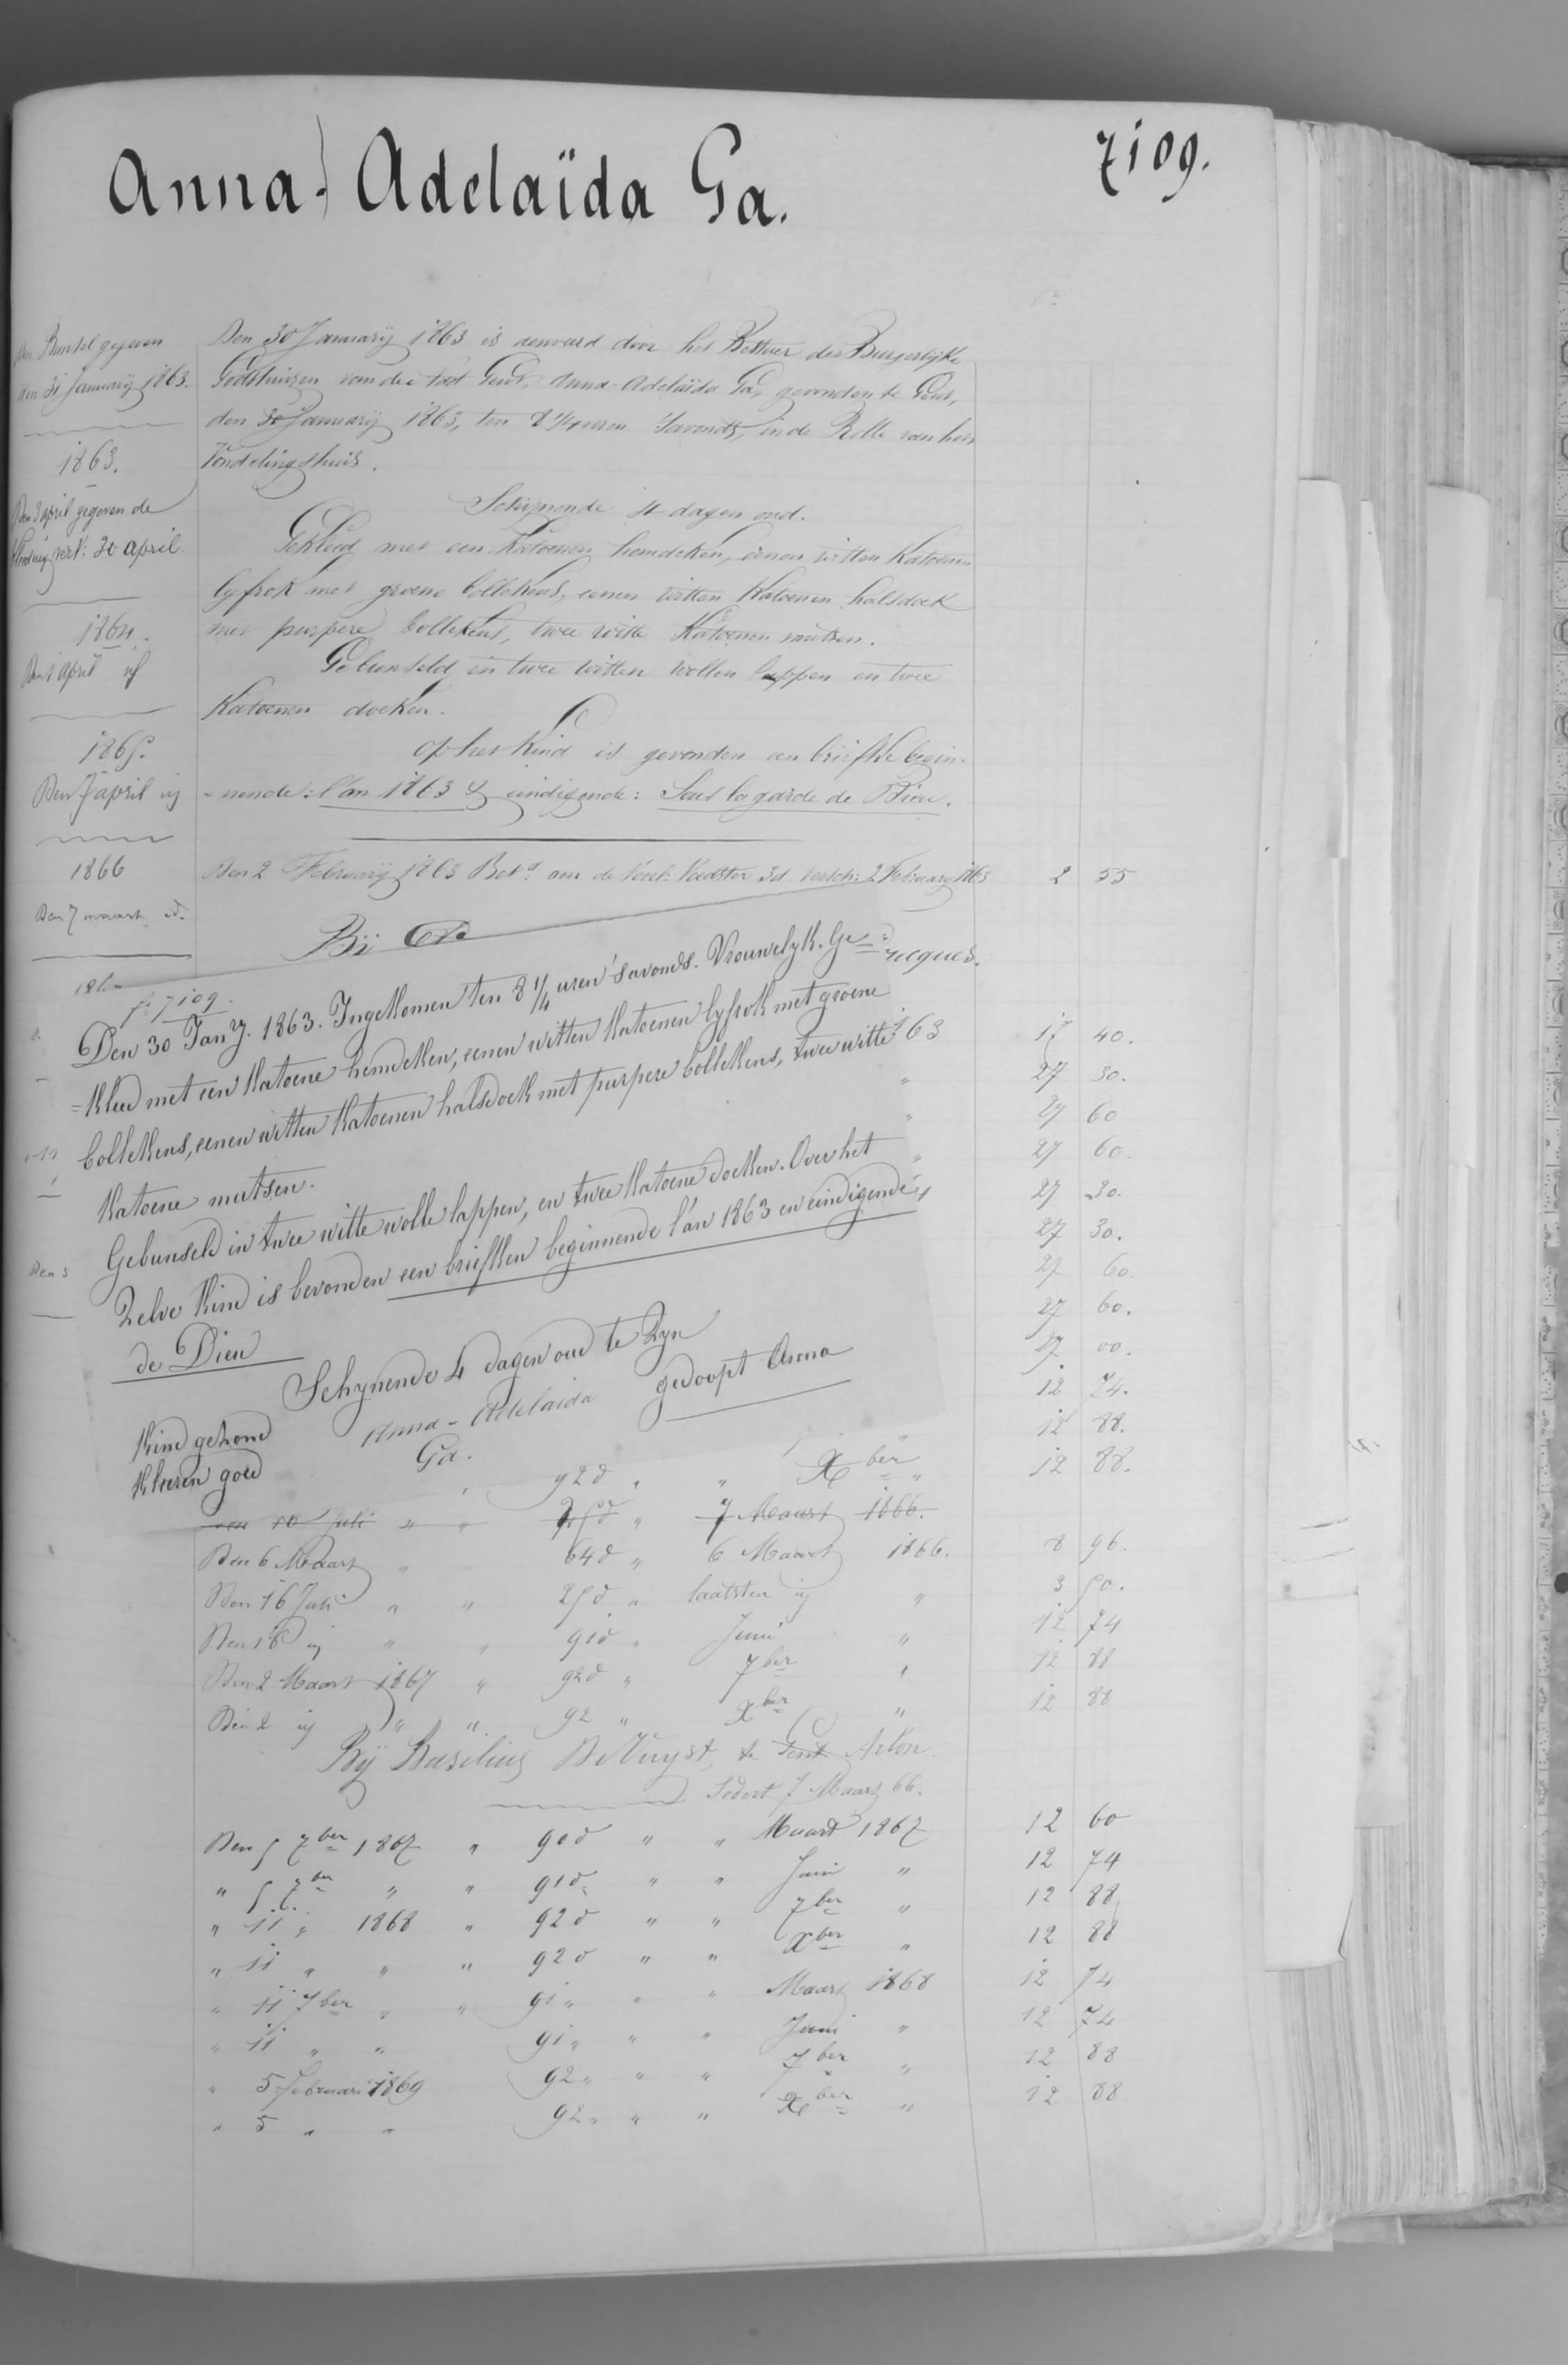 Anna-Adelaïda Ga.
7109.
Den Bunsel gegeven
den 31 Januarij 1863.
1863.
Den 3 april gegeven de
30 april
1864.
Den 1 april
1865.
Den 7 april
1866
Den 7 maart id.
Den 30 Januarij 1863 is aenveerd door het Bestuer der Burgerlijke
Godshuizen van de stad Gent, Anna-Adelaïda Ga, gevonden te Gent,
den 30 Januarij 1863, ten 8 1/4 uren 'savonds, in de Rolle van het
Vondelingshuis.
Schijnende 4 dagen oud.
Gekleed met een Katoenen hemdeken, eenen witten Katoenen
lyfrok met groene bollekens, eenen witten Katoenen halsdoek
met purpere bollekens, twee witte Katoenen mutsen.
Gebunseld in twee witten wollen lappen en twee
Katoenen doeken.
Op het Kind is gevonden een briefke begin-
-nende: l'an 1863 & eindigende: Sous la garde de Dieu.
Den 2 Februarij 1863 Bet.d aan de Voedster 3d 2 Februarij 1863 2 55
Bij
f° 7109.
Den 30 Jan.y 1863. Ingekomen ten 8 1/4 uren 'savonds. Vrouwelyk. Ge
=kleed met een Katoene hemdeken, eenen witten Katoenen lyfrok met groene
bollekens, eenen witten Katoenen halsdoek met purpere bollekens, twee witte
Katoene mutsen.
Gebunseld in twee witte wolle lappen, en twee Katoene doeken. Over het
Zelve Kind is bevonden een briefken beginnende l'an 1863 en eindigende
de Dieu
Schynende 4 dagen oud te Zyn
Kind gezond Anna-Adelaïda gedoopt Anna
Kleeren goed Ga.
63 17 40.
27 30.
27 60
27 60.
27 30.
27 30.
27 60
27 60.
27 00.
12 74.
12 88.
92 d " " Xber " 12 88.
Den 10 Juli " " 25 d " 7 Maart 1866.
Den 6 Maart " 64 d " 6 Maart 1866. 8 96.
Den 16 Juli " " 25 d " laatsten " 3 50.
Den 16 " " 91 d " Juni " 12 74
Den 2 Maart 1867 " 92 d " 7ber " 12 88
Den 2 " " 92 " Xber " 12 88
Bij Basilius De Vuyst, te Gent Arlon.
Sedert 7 Maart 66.
Den 5 7ber 1867 " 90 d " " Maart 1867 12 60
" 5 7ber " " 91 d " " Juni " 12 74
" 11 " 1868 " 92 d " " 7ber " 12 88
" 11 " " " 92 d " " Xber " 12 88
" 11 7ber " " 91 " " " Maart 1868 12 74
" 11 " " 91 " " " Juni " 12 74
" 5 Februari 1869 92 " " " 7ber " 12 88
" 5 " " 92 " " " Xber " 12 88